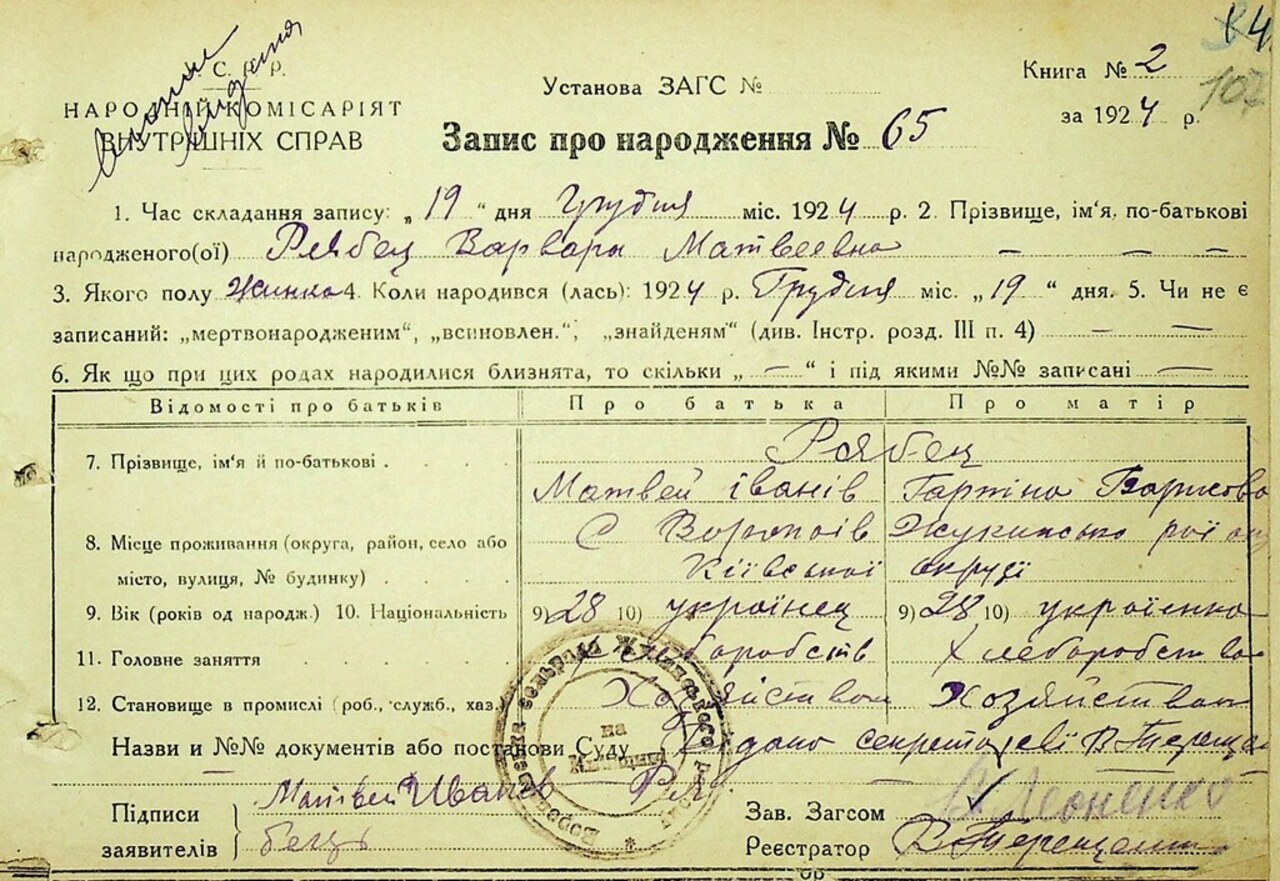 С. Р. Р.
НАРОДНІЙ КОМІСАРІЯТ
ВНУТРАШНІХ СПРАВ
Установа ЗАГС №
Книга № 2
107
за 1924 р.
Запис про народження № 65
1. Час складання запису: „19“ дня Грудня міс. 1924 р. 2. Прізвище, ім'я, по-батькові
народженого(ої) Рябец Варвара Матвеевна — — —
3. Якого полу Жинка 4. Коли народився (лась): 1924 р. Грудня міс. „19“ дня. 5. Чи не є
записаний: „мертвонародженим“, „всиновлен.“, „знайденям“ (див. Інстр. розд. III п. 4) — —
6. Як що при цих родах народилися близнята, то скільки „ — “ і під якими №№ записані —
Відомості про батьків Про батька Про матір
7. Прізвище, ім'я й по-батькові . . . . Рябец
Матвей іванів Гарпіна
8. Місце проживання (округа, район, село або С Воропаїв
місто, вулиця, № будинку) . . . . Київської округі
9. Вік (років од народж.) 10. Національність 9) 28 10) українец 9) 28 10) українка
11. Головне заняття . . . . . Хлеборобств Хлеборобство
12. Становище в промислі (роб., служб., хаз.) Хозяйством Хозяйством
Назви и №№ документів або постанови Суду Видано секретареві В Тереще
Підписи заявителів Матвей Иванов Ря
бець
Зав. Загсом В. Леоненко
Реєстратор В Терещенко